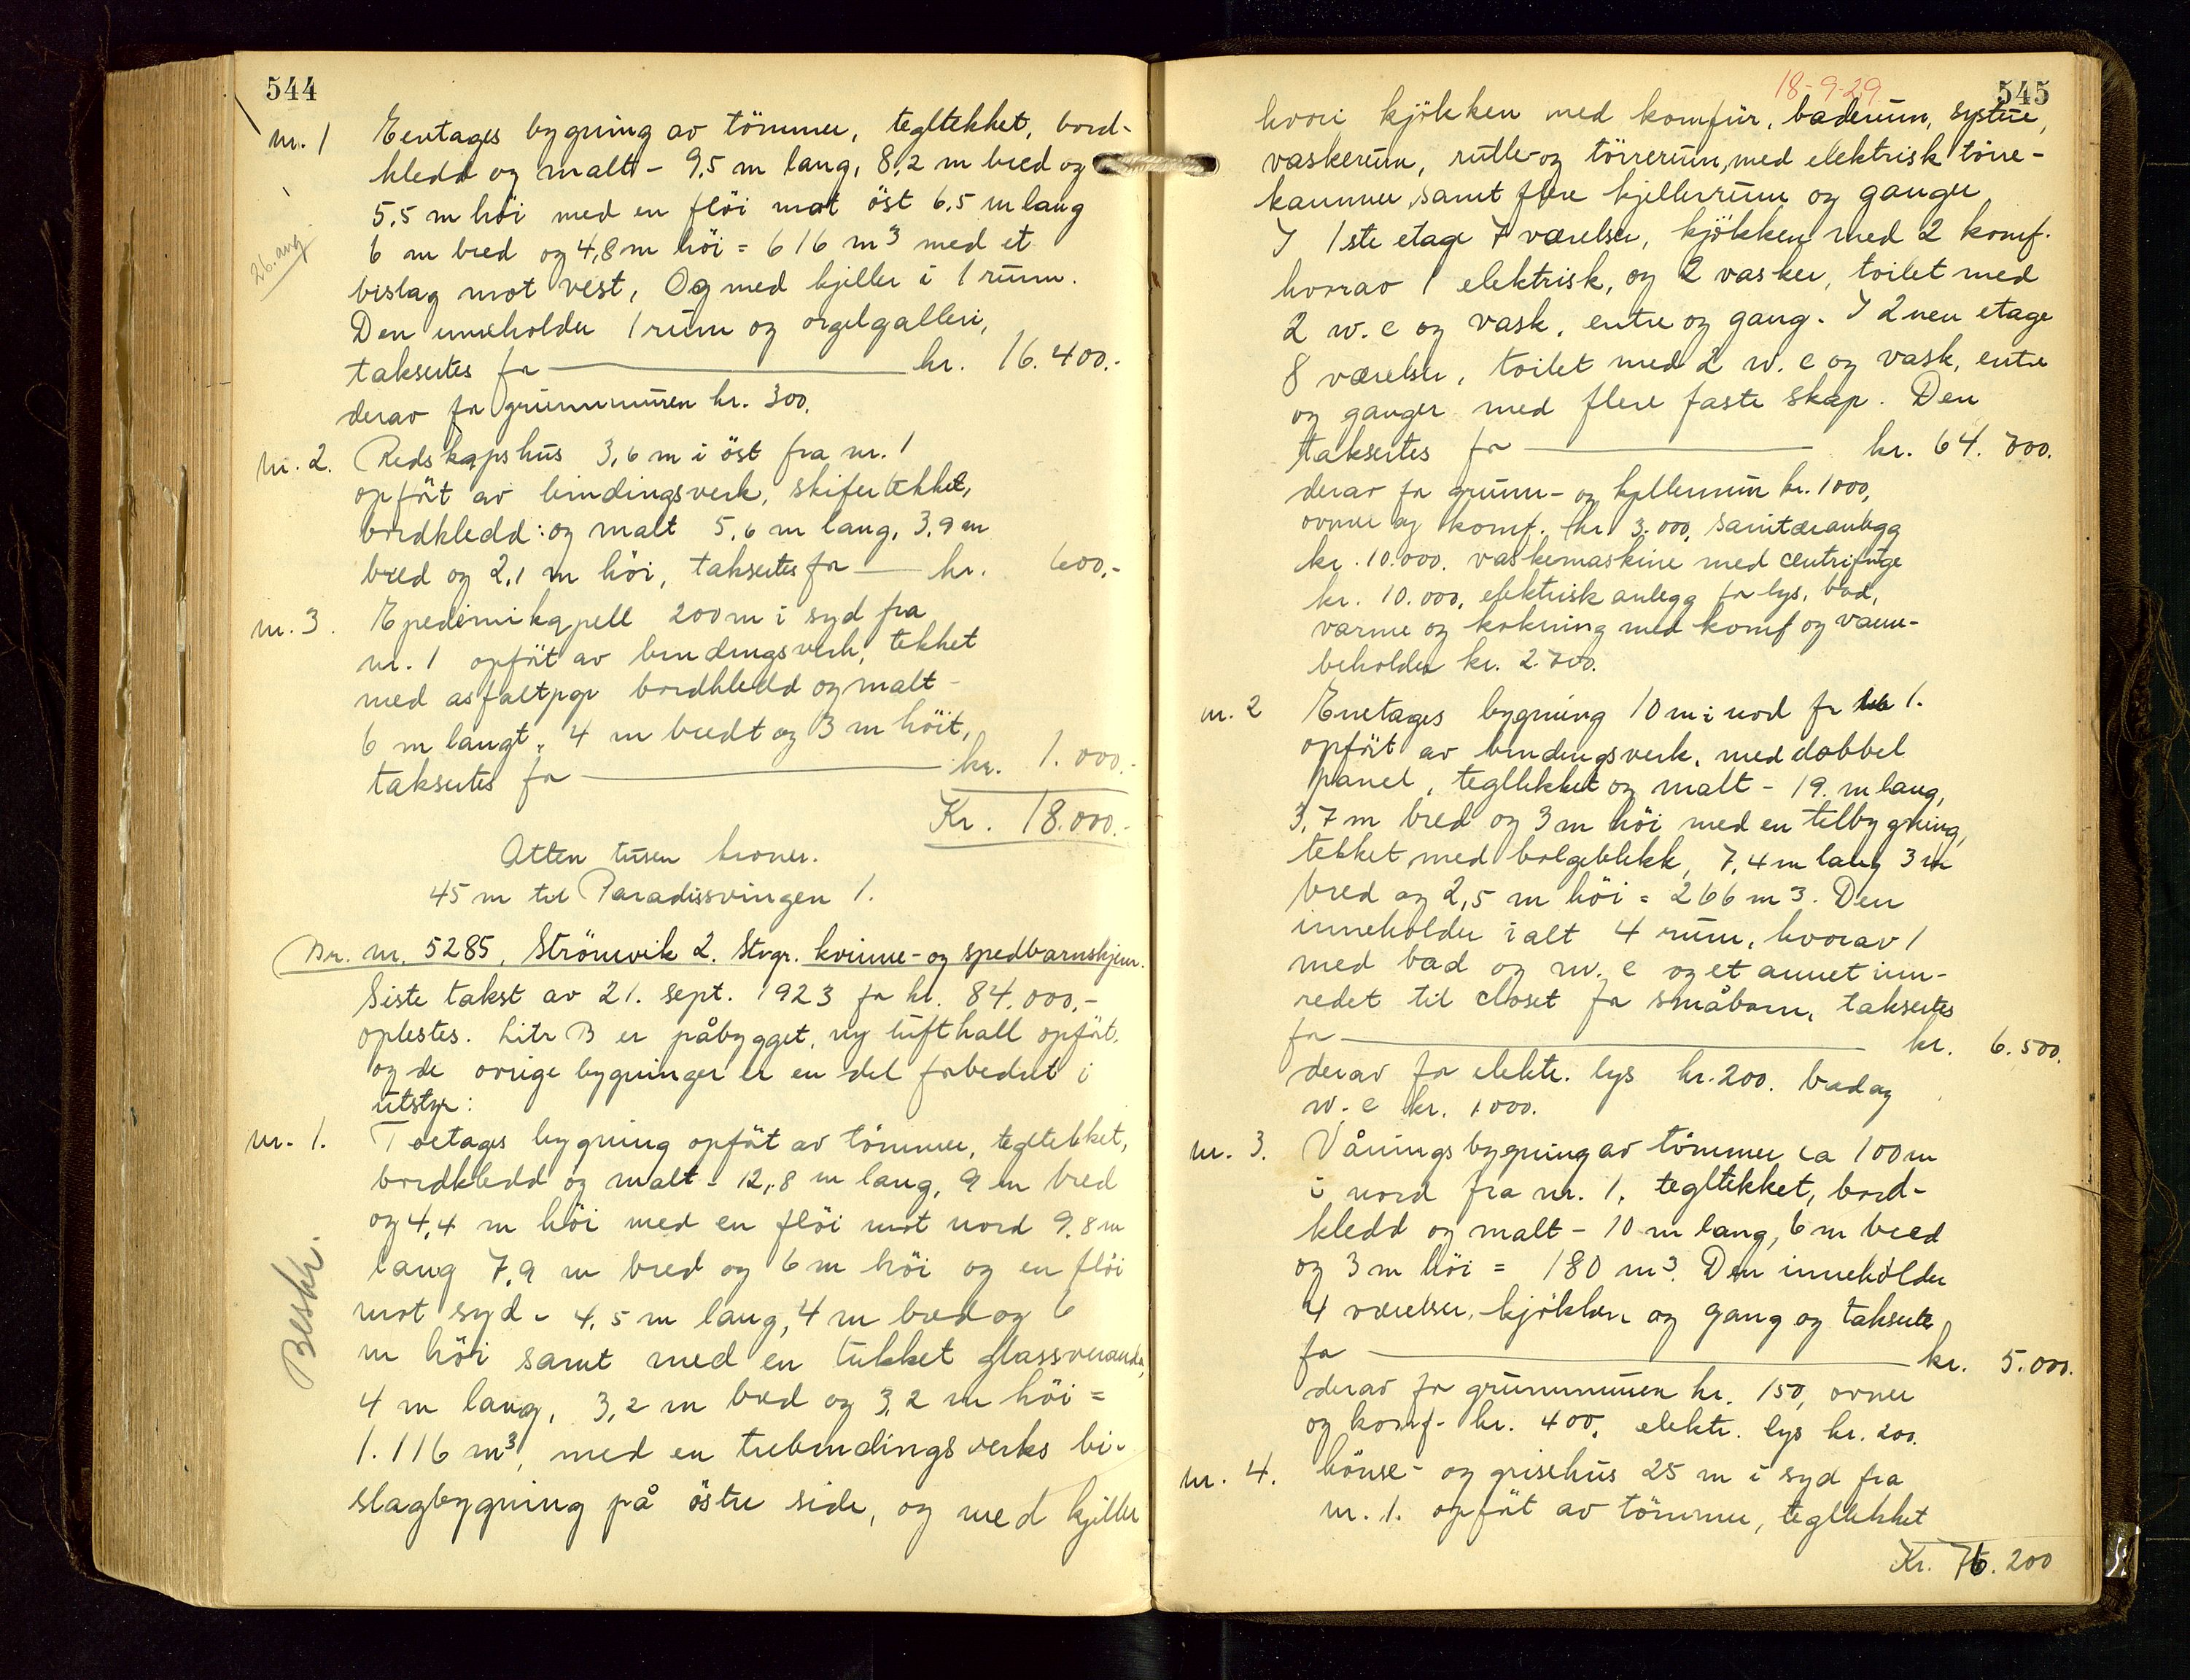 544
nr. 1 Enetages bygning av tömmer, tegltekket, bord-
kledd og malt - 9,5 m lang, 8,2 m bred og
5,5 m höi med en flöi mot öst 6,5 m lang
26. aug.
6 m bred og 4,8 m höi = 616 m3 med et
bislag mot vest, Og med kjeller i 1 rum.
Den inneholder 1 rum og orgelgalleri,
takseres for kr. 16.400.-
derav for grunnmuren kr. 300.
nr. 2. Redskapshus 3,6 m i öst fra nr. 1
opfört av bindingsverk, skifertekket,
bordkledd: og malt 5,6 m lang, 3,9 m
bred og 2,1 m höi, takseres for kr. 600.-
nr. 3. Epedemikapell 200 m i syd fra
nr. 1 opfört av bindingsverk, tekket
med asfaltpap bordkledd og malt -
6 m langt, 4 m bredt og 3 m höit,
takseres for kr. 1.000.-
Kr. 18.000.-
Atten tusen kroner.
45 m til Paradissvingen 1.
Br. nr. 5285, Strömvik 2. Stvgr. kvinne- og spedbarnshjem.
Siste takst av 21. sept. 1923 for kr. 84.000,-
oplestes. Litr B er påbygget, ny lufthall opfört,
og de övrige bygninger er en del forbedret i
utstyr:
nr. 1. Toetages bygning opfört av tömmer, tegltekket,
bordkledd og malt - 12,8 m lang, 9 m bred
og 4,4 m höi med en flöi mot nord 9,8 m
lang 7,9 m bred og 6 m höi og en flöi
Beskr.
mot syd - 4,5 m lang, 4 m bred og 6
m höi samt med en tekket glassveranda,
4 m lang, 3,2 m bred og 3,2 m höi =
1.116 m3, med en trebindingsverks bi-
slagbygning på östre side, og med kjeller
18-9-29
545
hvori kjökken med komfür, baderum, systue,
vaskerum, rulle- og törrerum, med elektrisk törre-
kammer, samt flere kjellerrum og ganger
I 1ste etage 7 værelser, kjökken med 2 komf.
hvorav 1 elektrisk, og 2 vasker, toilet med
2 w.c og vask, entre og gang. I 2nen etage
8 værelser, toilet med 2 w.c og vask, entre
og ganger med flere faste skap. Den
takseres for kr. 64.700.
derav for grunn- og kjellermur kr. 1000,
ovner og komf. kr. 3.000, sanitæranlegg
kr. 10.000. vaskemaskine med centrifuge
kr. 10.000, elektrisk anlegg for lys, bad,
varme og kokning med komf og vann-
beholder kr. 2.700.
nr. 2 Enetages bygning 10 m i nord fr 1.
opfört av bindingsverk, med dobbel
panel, tegltekket og malt - 19. m lang,
3,7 m bred og 3 m höi med en tilbygning,
tekket med bølgeblikk, 7,4 m lang 3 m
bred og 2,5 m höi = 266 m3. Den
inneholder ialt 4 rum, hvorav 1
med bad og w. c og et annet inn-
redet til closet for småbarn, takseres
for kr. 6.500.
derav for elektr. lys kr. 200. bad og
w. c kr. 1000.
nr. 3. Våningsbygning av tömmer ca 100 m
i nord fra nr. 1. tegltekket, bord-
kledd og malt - 10 m lang, 6 m bred
og 3 m höi = 180 m3. Den inneholder
4 værelser, kjökken og gang og takseres
for kr. 5.000.
derav for grunnmuren kr. 150, ovner
og komf. kr. 400, elektr. lys kr. 200.
nr. 4. hönse- og grisehus 25 m i syd fra
nr. 1. opfört av tömmer, tegltekket
Kr. 76.200